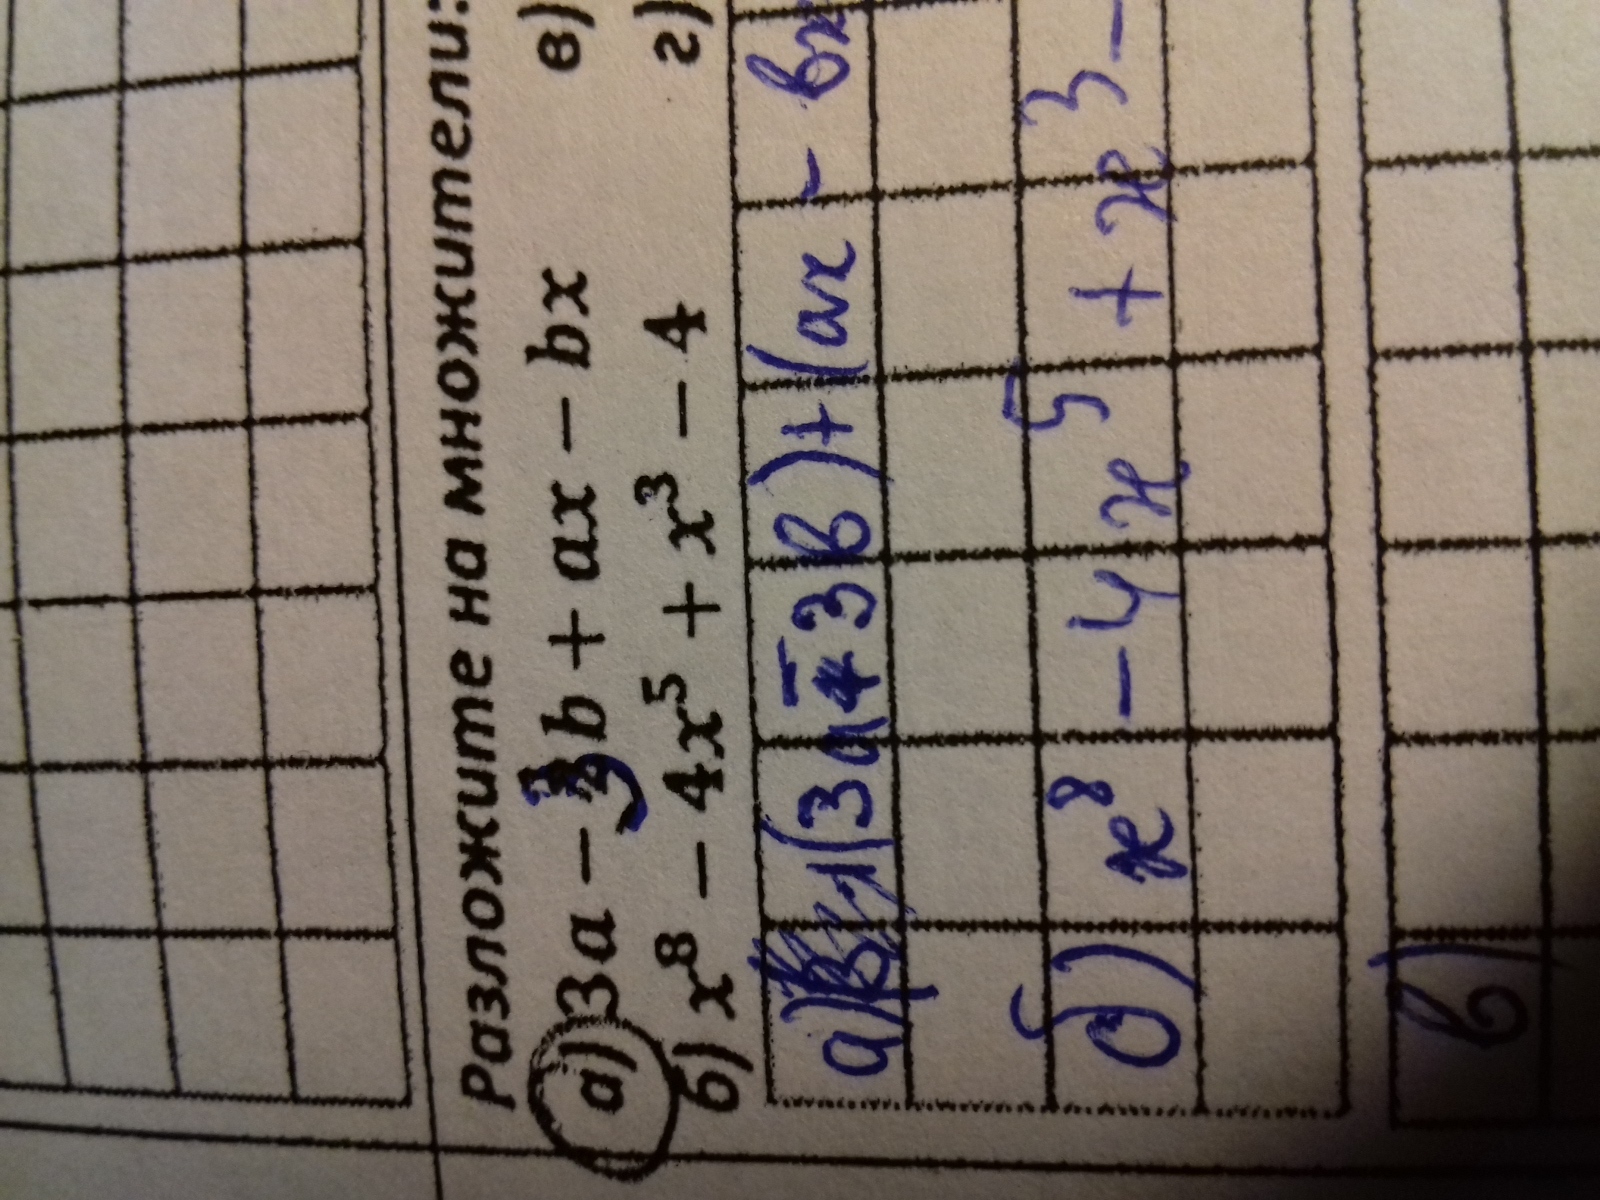 Разложите на множители:
а) 3a − 3b + ax − bx
в)
б) x⁸ − 4x⁵ + x³ − 4
г)
а) (3a − 3в) + (ax − вx
б) x⁸ − 4x⁵ + x³ −
в)